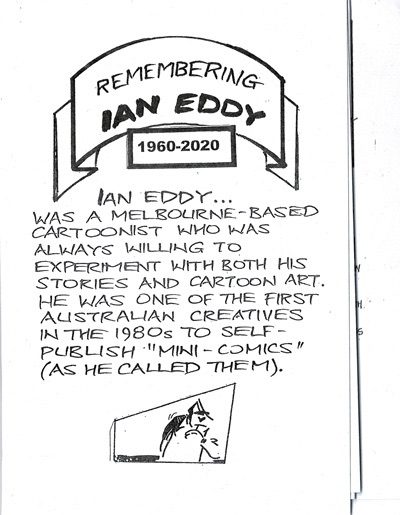 REMEMBERING
IAN EDDY
1960-2020
IAN EDDY...
WAS A MELBOURNE-BASED
CARTOONIST WHO WAS
ALWAYS WILLING TO
EXPERIMENT WITH BOTH HIS
STORIES AND CARTOON ART.
HE WAS ONE OF THE FIRST
AUSTRALIAN CREATIVES
IN THE 1980s TO SELF-
PUBLISH "MINI-COMICS"
(AS HE CALLED THEM).